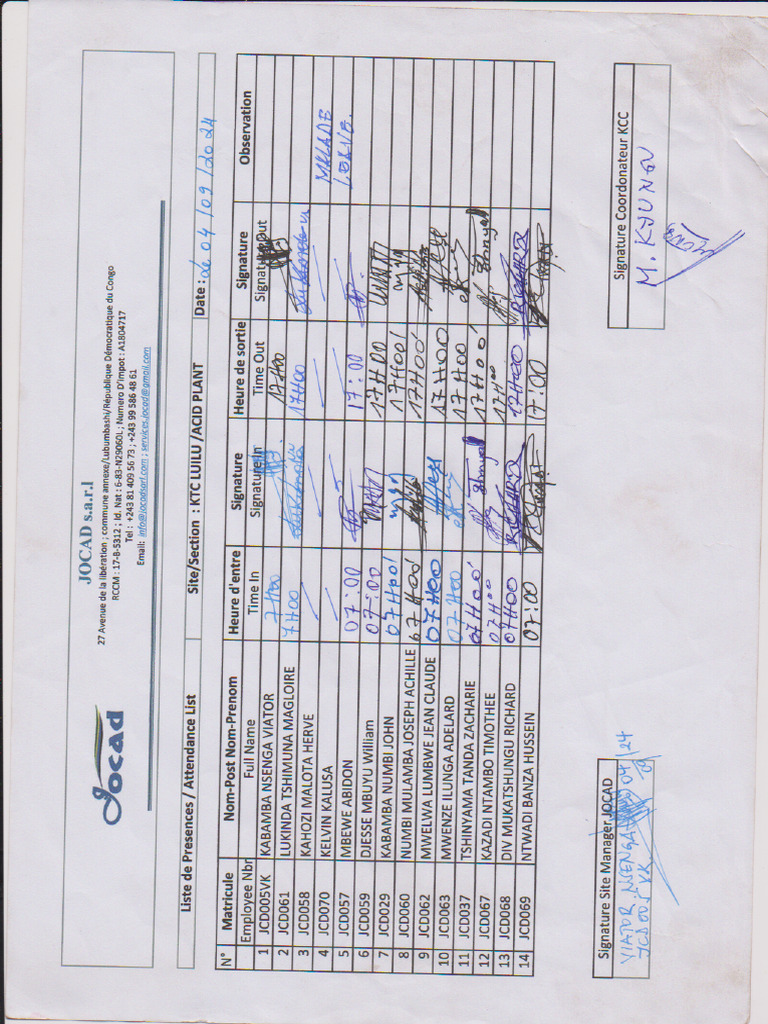 Jocad
JOCAD s.a.r.l
27 Avenue de la libération ; commune annexe/Lubumbashi/République Démocratique du Congo
RCCM : 17-B-5312 ; Id. Nat : 6-83-N29060L ; Numero D'impot : A1804717
Tel : +243 81 409 56 73 ; +243 99 586 48 61
Email: info@jocadsarl.com ; services.jocad@gmail.com
Liste de Presences / Attendance List Site/Section : KTC LUILU /ACID PLANT Date : de 04/09/2024
N° Matricule Nom-Post Nom-Prenom Heure d'entre Signature Heure de sortie Signature Observation
Employee Nbr Full Name Time In Signature In Time Out Signature Out
1 JCD005VK KABAMBA NSENGA VIATOR 7H00 17H00
2 JCD061 LUKINDA TSHIMUNA MAGLOIRE 7H00 17H00
3 JCD058 KAHOZI MALOTA HERVE MALADE
4 JCD070 KELVIN KALUSA
5 JCD057 MBEWE ABIDON 07:00 17:00
6 JCD059 DJESSE MBUYU William 07:00 17H00
7 JCD029 KABAMBA NUMBI JOHN 07H00' 17H00'
8 JCD060 NUMBI MULAMBA JOSEPH ACHILLE 07H00' 17H00'
9 JCD062 MWELWA LUMBWE JEAN CLAUDE 07H00 17H00
10 JCD063 MWENZE ILUNGA ADELARD 07H00 17H00
11 JCD037 TSHINYAMA TANDA ZACHARIE 07H00' 17H00'
12 JCD067 KAZADI NTAMBO TIMOTHEE 07H00 17H00
13 JCD068 DIV MUKATSHUNGU RICHARD 07H00 RICHARD 17H00
14 JCD069 NTWADI BANZA HUSSEIN 07:00 17:00
Signature Site Manager JOCAD
VIATOR NSENGA 04/09/24
JCD005VK
Signature Coordonateur KCC
M. KJUNGU